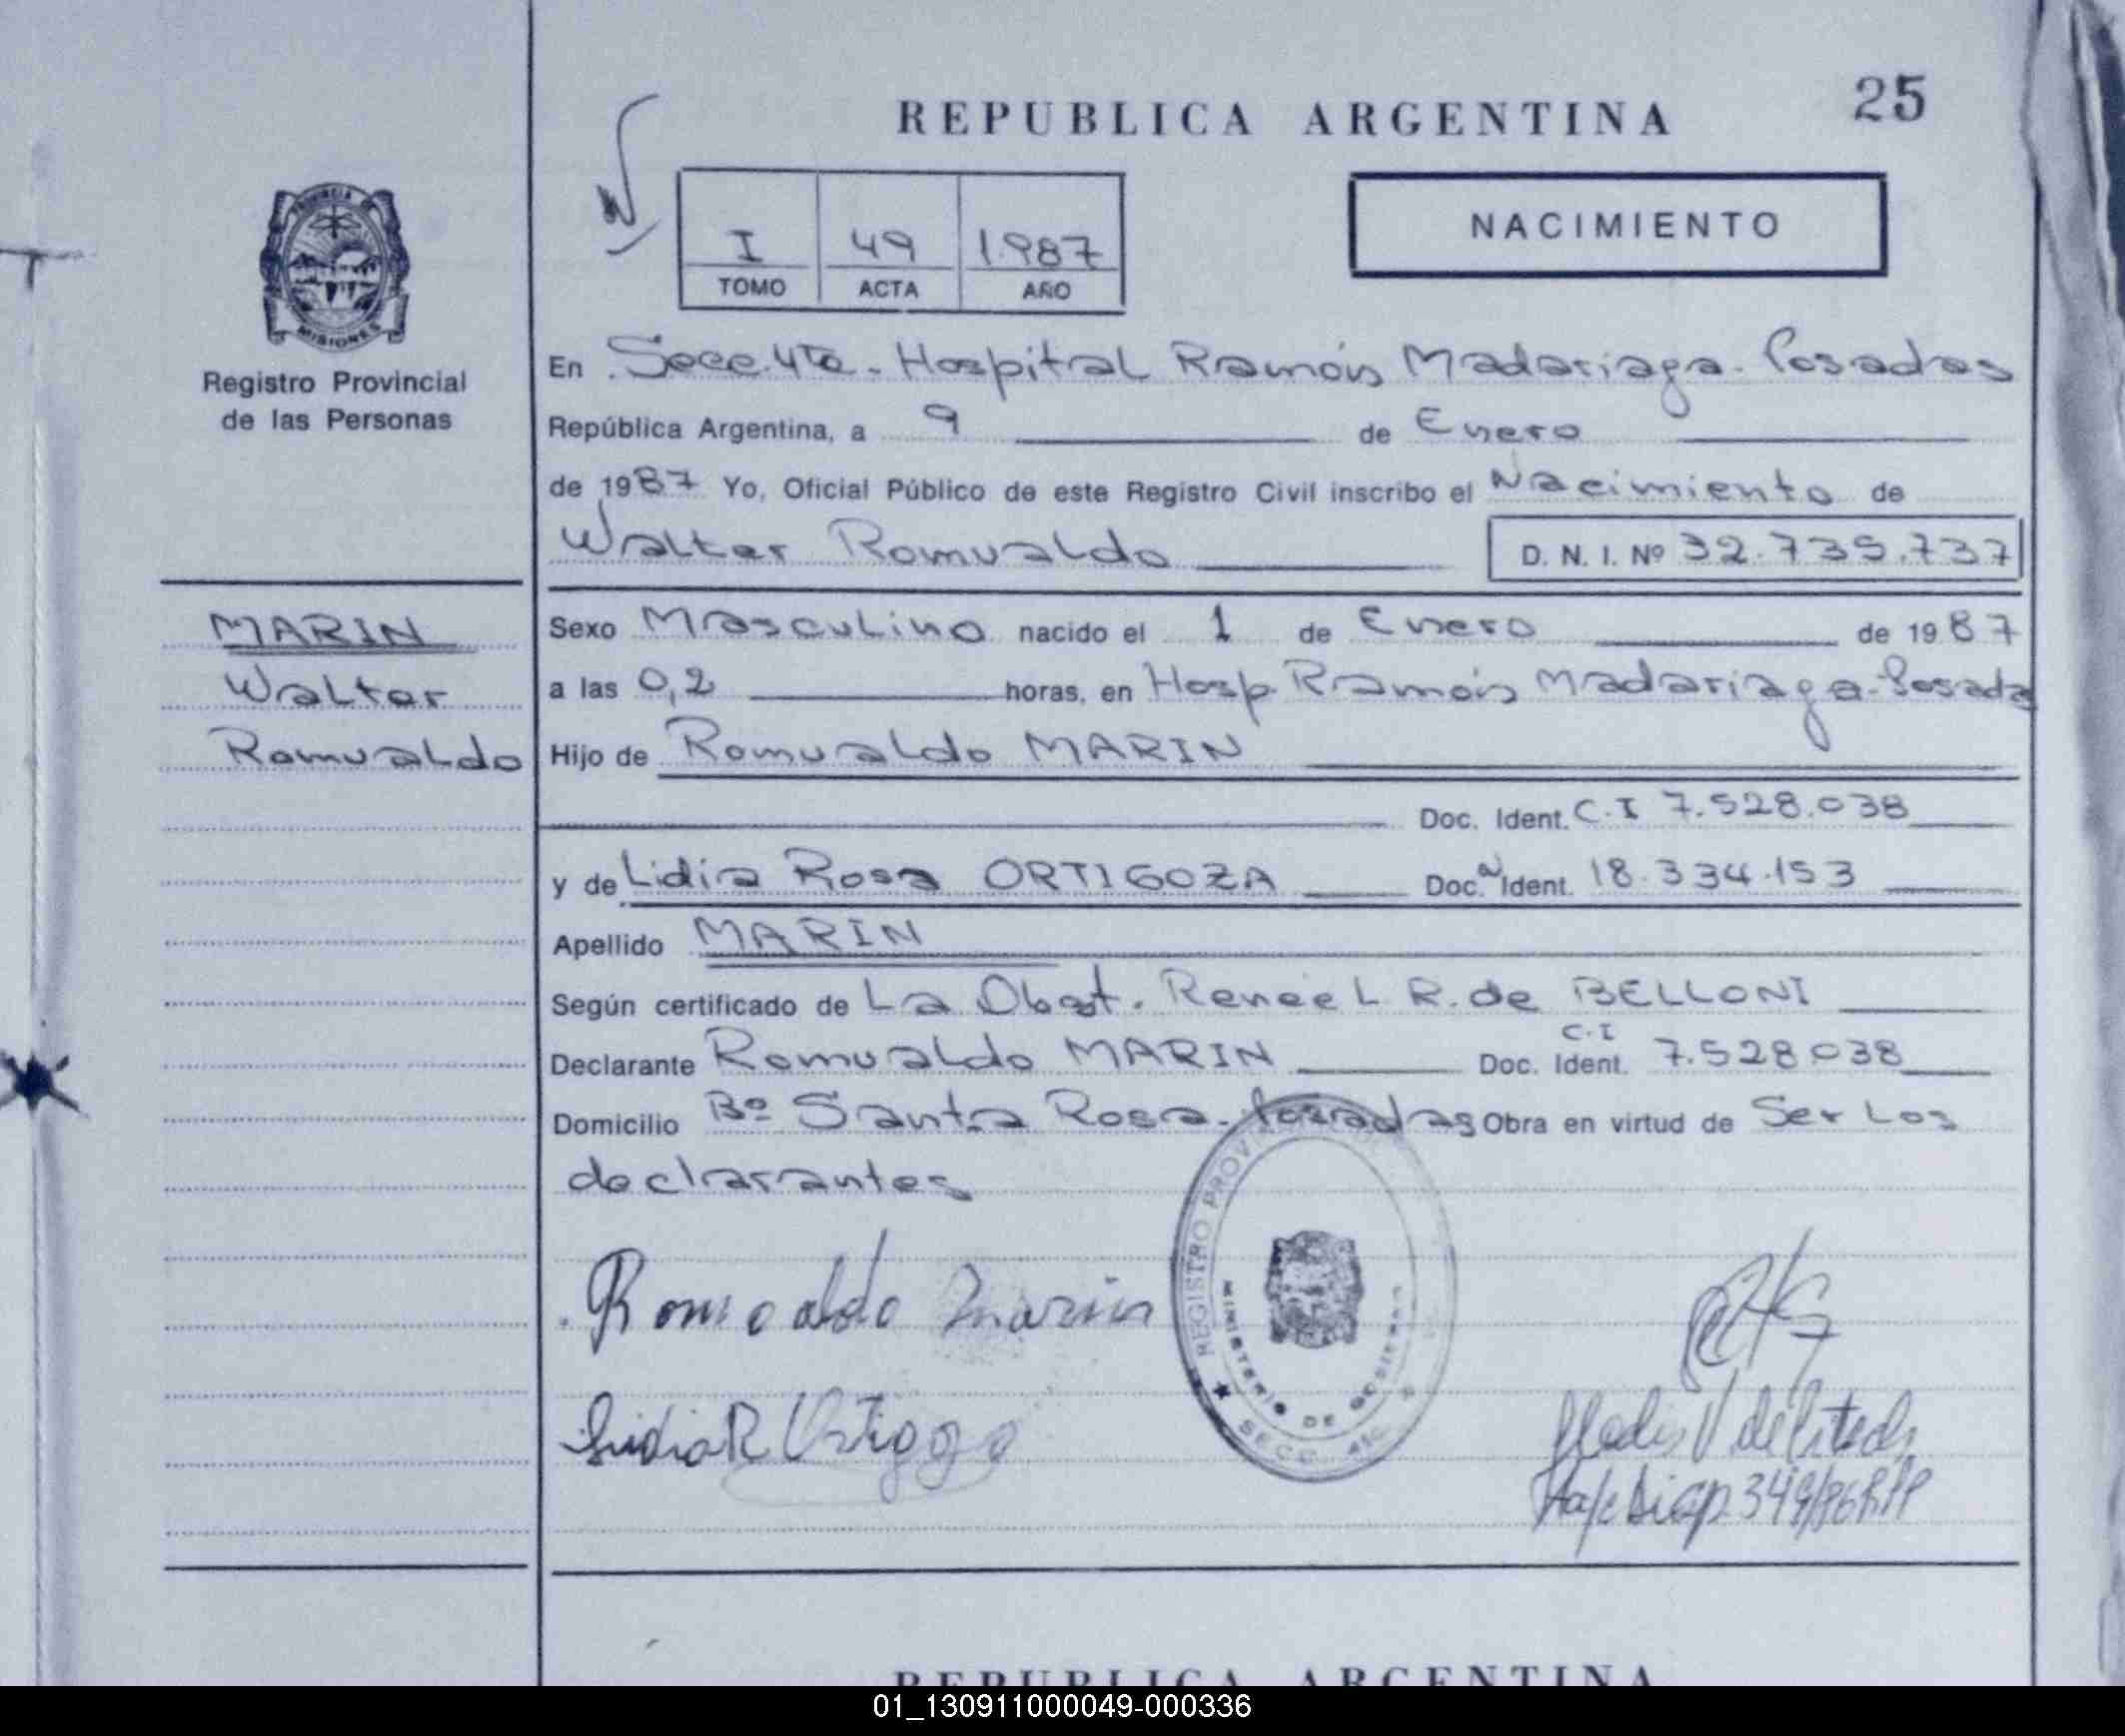 REPUBLICA ARGENTINA
25
I 49 1987
TOMO ACTA AÑO
NACIMIENTO
PROVINCIA
MISIONES
Registro Provincial
de las Personas
En Secc. 4ta - Hospital Ramón Madariaga - Posadas
República Argentina, a 9 de Enero
de 1987 Yo, Oficial Público de este Registro Civil inscribo el Nacimiento de
Walter Romualdo D. N. I. Nº 32.735.737
MARIN
Walter
Romualdo
Sexo Masculino nacido el 1 de Enero de 1987
a las 0,2 horas, en Hosp. Ramón Madariaga - Posadas
Hijo de Romualdo MARIN
Doc. Ident. C.I 7.528.038
y de Lidia Rosa ORTIGOZA Doc. Ident. 18.334.153
Apellido MARIN
Según certificado de La Obst. Renée L. R. de BELLONI
Declarante Romualdo MARIN Doc. Ident. C.I 7.528.038
Domicilio Bº Santa Rosa - Posadas Obra en virtud de Ser Los
declarantes
Romoaldo Marin
Lidia R Ortigoza
REGISTRO PROVI
MINISTERIO DE GOBIERNO
SECC. 4ta
REPUBLICA ARGENTINA
01_130911000049-000336